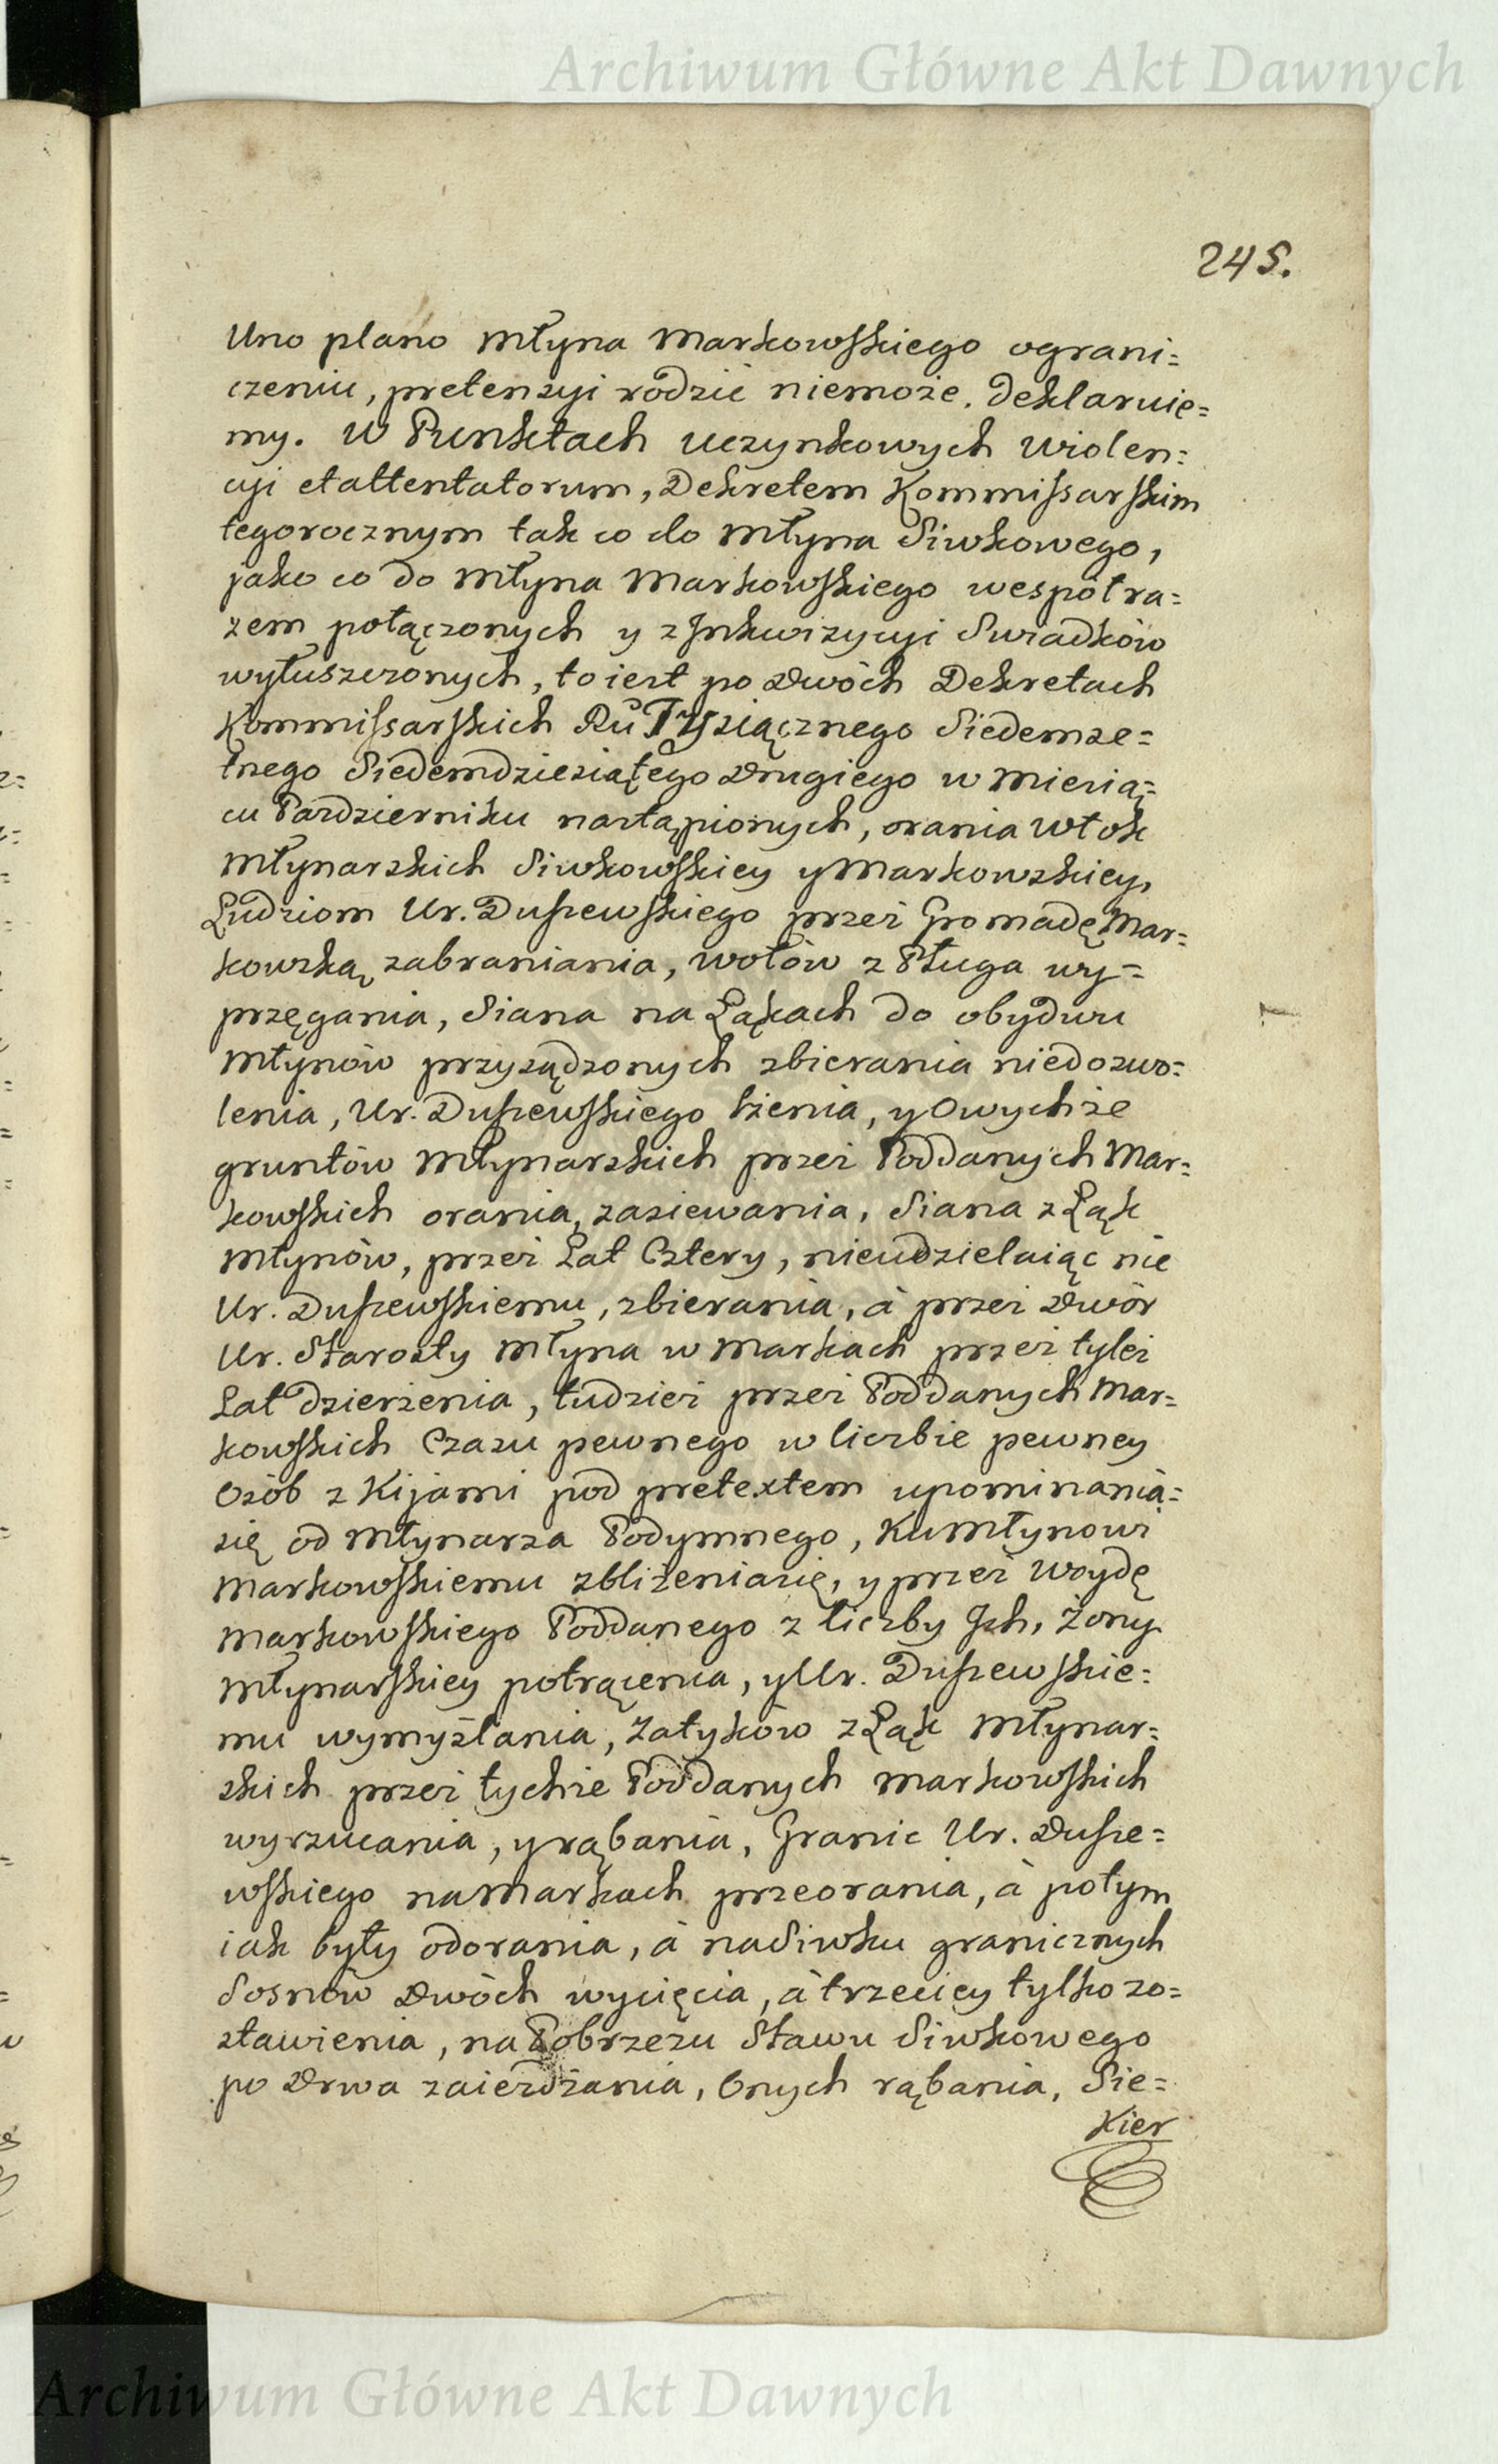 Archiwum Główne Akt Dawnych
245.
Uno plano Młyna Markowskiego ograni=
czeniu, pretensyi rodzić niemoże. Deklaruię=
my. W Punktach uczynkowych violen=
cyi etattentatorum, Dekretem Kommissarskim
tegorocznym tak co do Młyna Siwkowego,
jako co do Młyna Markowskiego wespół ra=
zem połączonych y z Inkwizycyi Swiadków
wyłuszczonych, to iest po Dwóch Dekretach
Kommissarskich Rů Tysiącznego Siedemse=
tnego Siedemdziesiątego Drugiego w Miesią=
cu Pazdzierniku nastąpionych, orania Włok
Młynarskich Siwkowskiey y Markowskiey,
Ludziom Ur. Duszewskiego przez Gromadę Mar=
kowską zabraniania, wołów z Pługa wy=
przęgania, Siana na Łąkach do obydwu
Młynów przysądzonych zbierania niedozwo=
lenia, Ur. Duszewskiego lżenia, y Owychże
gruntów Młynarskich przez Poddanych Mar=
kowskich orania, zasiewania, Siana z Łąk
Młynów, przez Lat Cztery, nieudzielaiąc nic
Ur. Duszewskiemu, zbierania, à przez Dwór
Ur. Starosty Młyna w Markach przez tyleż
Lat dzierżenia, tudzież przez Poddanych Mar=
kowskich Czasu pewnego w liczbie pewney
Osób z Kijami pod pretextem upominania=
się od Młynarza Podymnego, Ku Młynowi
Markowskiemu zbliżeniasię, y przez Woydę
Markowskiego Poddanego z liczby Ich, Żony
Młynarskiey potrącenia, y Ur. Duszewskie=
mu wymyślania, Zatyków z Łąk Młynar=
skich przez tychże Poddanych Markowskich
wyrzucania, y rąbania, Granic Ur. Dusze=
wskiego na Markach przeorania, à potym
iak były odorania, à na Siwku granicznych
Sosnów Dwóch wycięcia, à trzeciey tylko zo=
stawienia, na Pobrzeżu Stawu Siwkowego
po Drwa zaieżdżania, Onych rąbania, Sie=
Kier
Archiwum Główne Akt Dawnych